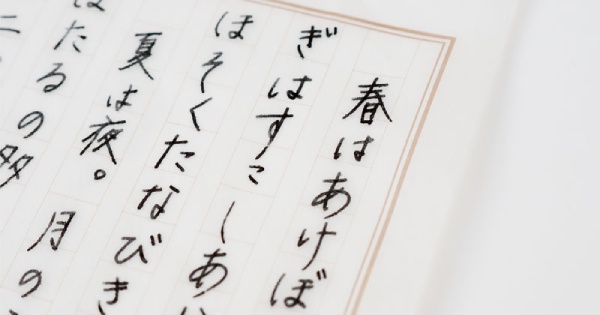 春はあけぼ
ぎはすこしあ
ほそくたなびき
夏は夜。月の
たるの多